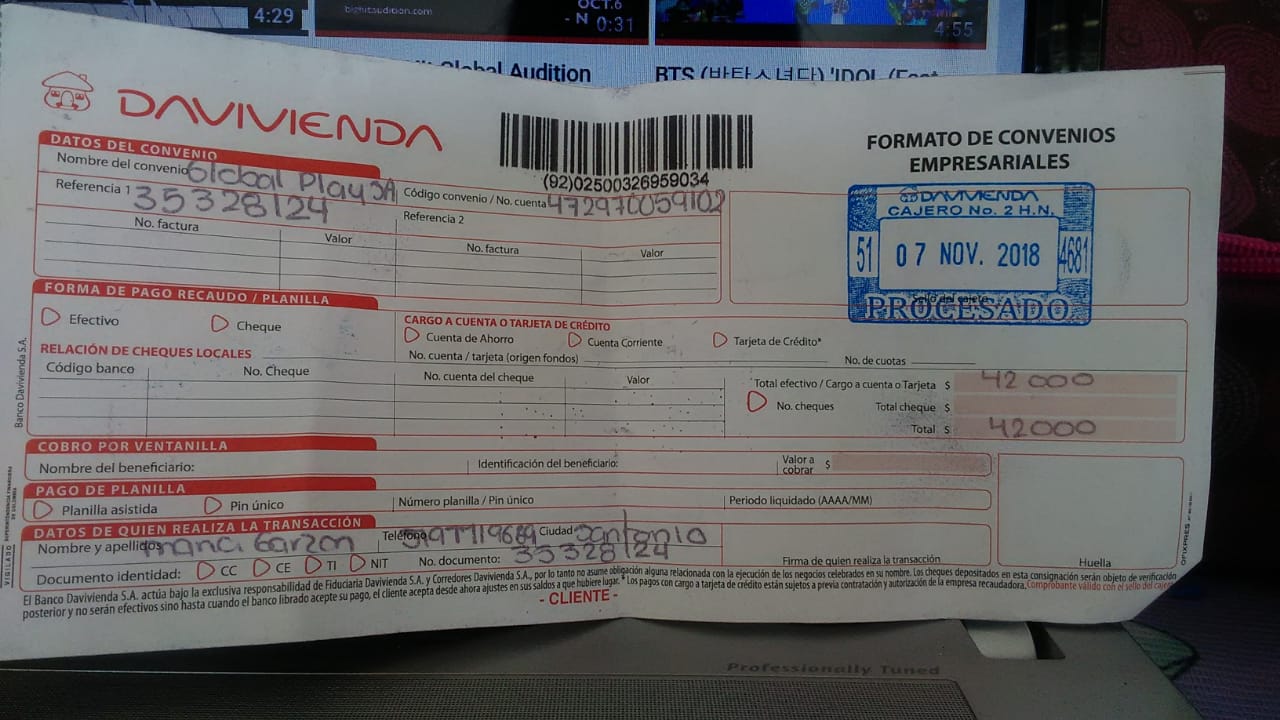 4:29
bighitaudition.com
OCT.6
- N 0:31
4:55
Global Audition
BTS (방탄소년단) 'IDOL (Feat
DAVIVIENDA
FORMATO DE CONVENIOS
EMPRESARIALES
(92)02500326959034
DATOS DEL CONVENIO
Nombre del convenio Global Play SA
Código convenio / No. cuenta 472970059102
Referencia 1 35328124
Referencia 2
No. factura Valor No. factura Valor
DAVIVIENDA
CAJERO No. 2 H.N.
51 07 NOV. 2018 4681
Sello del cajero
PROCESADO
FORMA DE PAGO RECAUDO / PLANILLA
Efectivo Cheque
CARGO A CUENTA O TARJETA DE CRÉDITO
Cuenta de Ahorro Cuenta Corriente Tarjeta de Crédito*
No. cuenta / tarjeta (origen fondos) No. de cuotas
RELACIÓN DE CHEQUES LOCALES
Código banco No. Cheque No. cuenta del cheque Valor
Total efectivo / Cargo a cuenta o Tarjeta $ 42000
No. cheques Total cheque $
Total $ 42000
COBRO POR VENTANILLA
Nombre del beneficiario: Identificación del beneficiario: Valor a cobrar $
PAGO DE PLANILLA
Planilla asistida Pin único Número planilla / Pin único Periodo liquidado (AAAA/MM)
DATOS DE QUIEN REALIZA LA TRANSACCIÓN
Nombre y apellidos Garzon Teléfono Ciudad
Documento identidad: CC CE TI NIT No. documento: 35328124
Firma de quien realiza la transacción
Huella
El Banco Davivienda S.A. actúa bajo la exclusiva responsabilidad de Fiduciaria Davivienda S.A. y Corredores Davivienda S.A., por lo tanto no asume obligación alguna relacionada con la ejecución de los negocios celebrados en su nombre. Los cheques depositados en esta consignación serán objeto de verificación
posterior y no serán efectivos sino hasta cuando el banco librado acepte su pago, el cliente acepta desde ahora ajustes en sus saldos a que hubiere lugar. * Los pagos con cargo a tarjeta de crédito están sujetos a previa contratación y autorización de la empresa recaudadora. Comprobante válido con el sello del cajero
- CLIENTE -
Banco Davivienda S.A.
VIGILADO SUPERINTENDENCIA FINANCIERA
DE COLOMBIA
Professionally Tuned